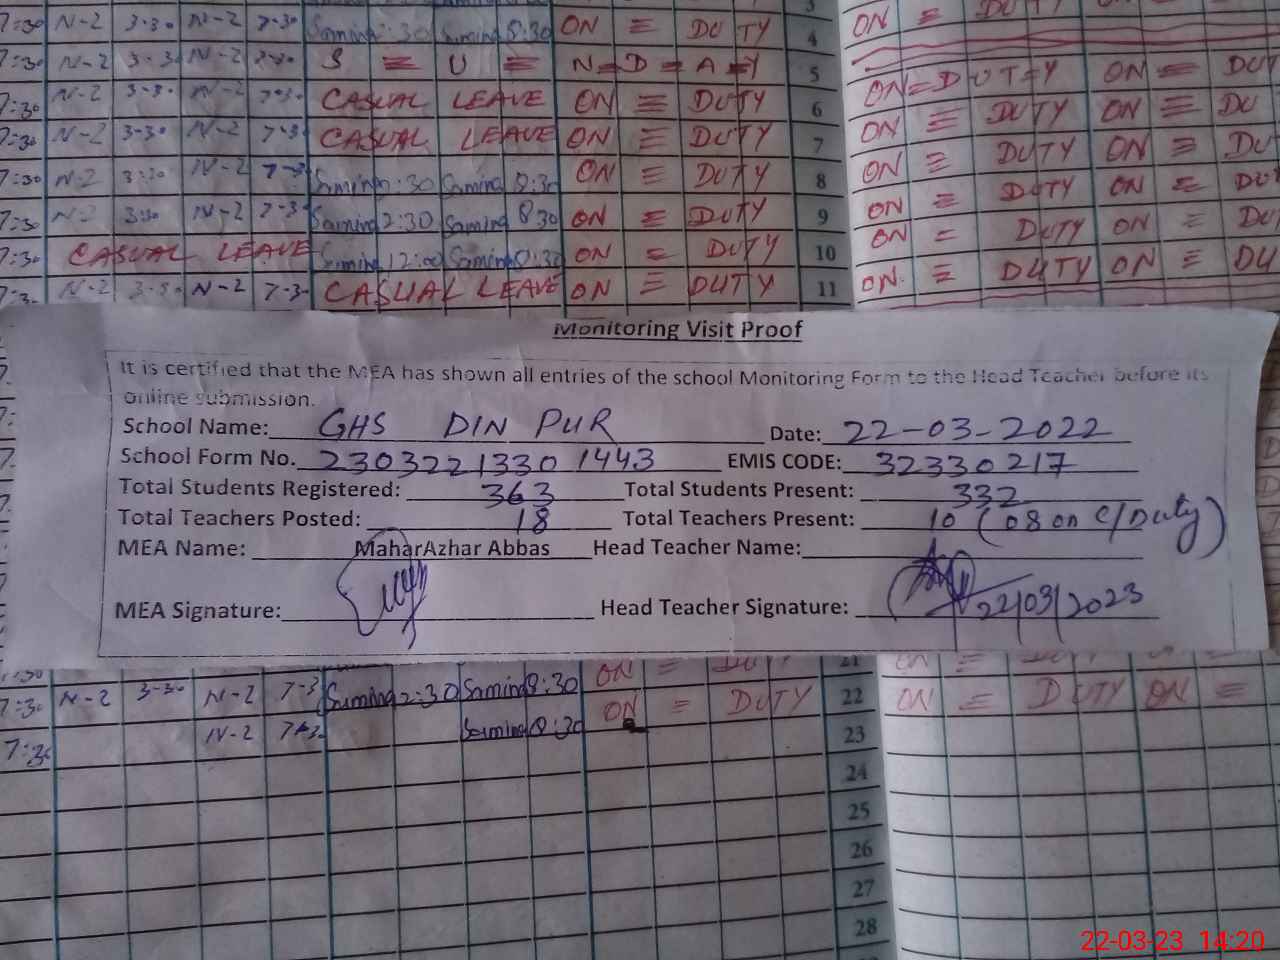 7:30 N-2 3-30 N-2 7-30 Saming 2:30 Saming 8:30 ON = DUTY 4 ON = DUTY
7:30 N-2 3-30 N-2 7-30 S = U = N = D = A = Y 5 ON = DUTY ON = DUT
7:30 N-2 3-30 N-2 7-30 CASUAL LEAVE ON = DUTY 6 ON = DUTY ON = DU
7:30 N-2 3-30 N-2 7-3 CASUAL LEAVE ON = DUTY 7 ON = DUTY ON = DU
7:30 N-2 3:30 N-2 7-3 Saming 2:30 Saming 8:30 ON = DUTY 8 ON = DUTY ON = DUT
7:30 N-2 3:30 N-2 7-3 Saming 2:30 Saming 8:30 ON = DUTY 9 ON = DUTY ON = DU
7:30 CASUAL LEAVE Saming 12:00 Saming 8:30 ON = DUTY 10 ON = DUTY ON = DU
7:3 N-2 3-30 N-2 7-3 CASUAL LEAVE ON = DUTY 11
Monitoring Visit Proof
It is certified that the MEA has shown all entries of the school Monitoring Form to the Head Teacher before its
online submission.
School Name: GHS DIN PUR Date: 22-03-2022
School Form No. 23032213301443 EMIS CODE: 32330217
Total Students Registered: 363 Total Students Present: 332
Total Teachers Posted: 18 Total Teachers Present: 10 (08 on C/Duty)
MEA Name: MaharAzhar Abbas Head Teacher Name:
MEA Signature: Head Teacher Signature: 22/03/2023
ON = DUT 21
7:30 N-2 3-30 N-2 7-3 Saming 2:30 Saming 8:30 ON = DUTY 22 ON = DUTY ON =
7:30 N-2 7-3 Saming 8:30 23
24
25
26
27
28
22-03-23 14:20